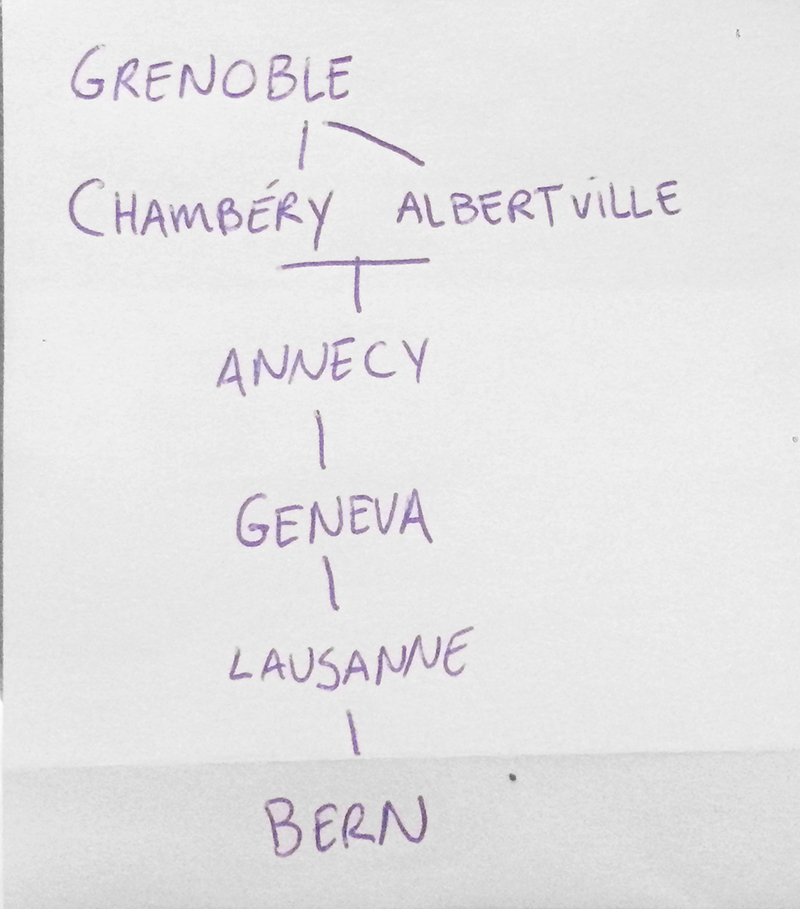 GRENOBLE
CHAMBÉRY ALBERTVILLE
ANNECY
GENEVA
LAUSANNE
BERN